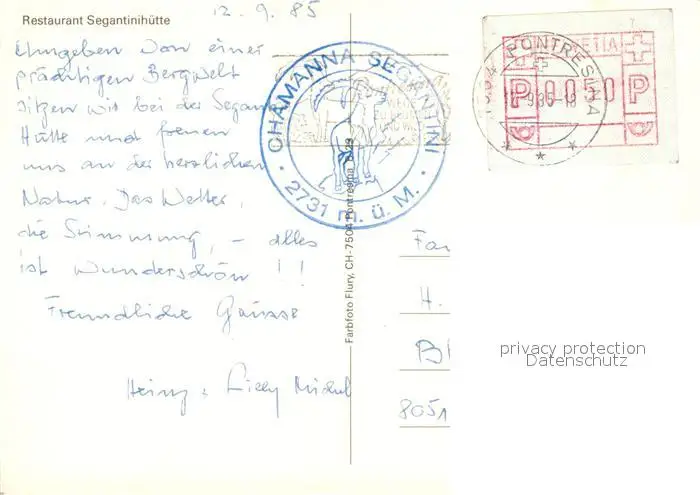 Restaurant Segantinihütte
12.9.85
Umgeben von einer
prächtigen Bergwelt
sitzen wir bei der Segant
Hütte und freuen
uns an der herrlichen
Natur. Das Wetter,
die Stimmung, – alles
ist wunderschön !!
Freundliche Grüsse
Heinz + Lilly
CHAMANNA SEGANTINI
2731 m. ü. M.
Farbfoto Flury, CH-7504 Pontresina
PONTRESINA
HELVETIA
P 0050 P
Fa
H.
Bl
8051
privacy protection
Datenschutz